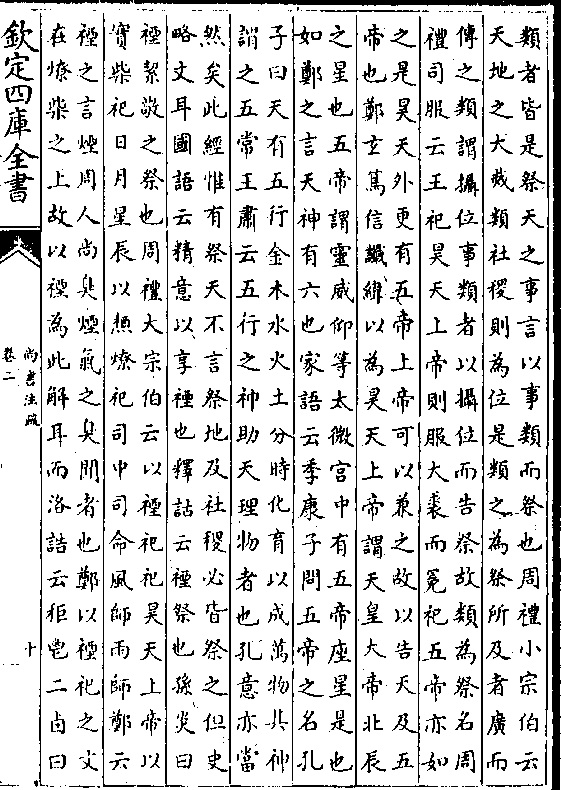 類者皆是祭天之事言以事類而祭也周禮小宗伯云
天地之大烖類社稷則為位是類之為祭所及者廣而
傳之類謂攝位事類者以攝位而告祭故類為祭名周
禮司服云王祀昊天上帝則服大裘而冕祀五帝亦如
之是昊天外更有五帝上帝可以兼之故以告天及五
帝也鄭玄篤信讖緯以為昊天上帝謂天皇大帝北辰
之星也五帝謂靈威仰等太微宮中有五帝座星是也
如鄭之言天神有六也家語云季康子問五帝之名孔
子曰天有五行金木水火土分時化育以成萬物其神
謂之五帝王肅云五行之神助天理物者也孔意亦當
然矣此經惟有祭天不言祭地及社稷必皆祭之但史
略文耳國語云精意以享禋也釋詁云禋祭也孫炎曰
禋絜敬之祭也周禮大宗伯云以禋祀祀昊天上帝以
實柴祀日月星辰以槱燎祀司中司命風師雨師鄭云
禋之言煙周人尚臭煙氣之臭聞者也鄭以禋祀之文
在燎柴之上故以禋為此解耳而洛誥云秬鬯二卣曰
欽定四庫全書
尚書注疏
卷二
十